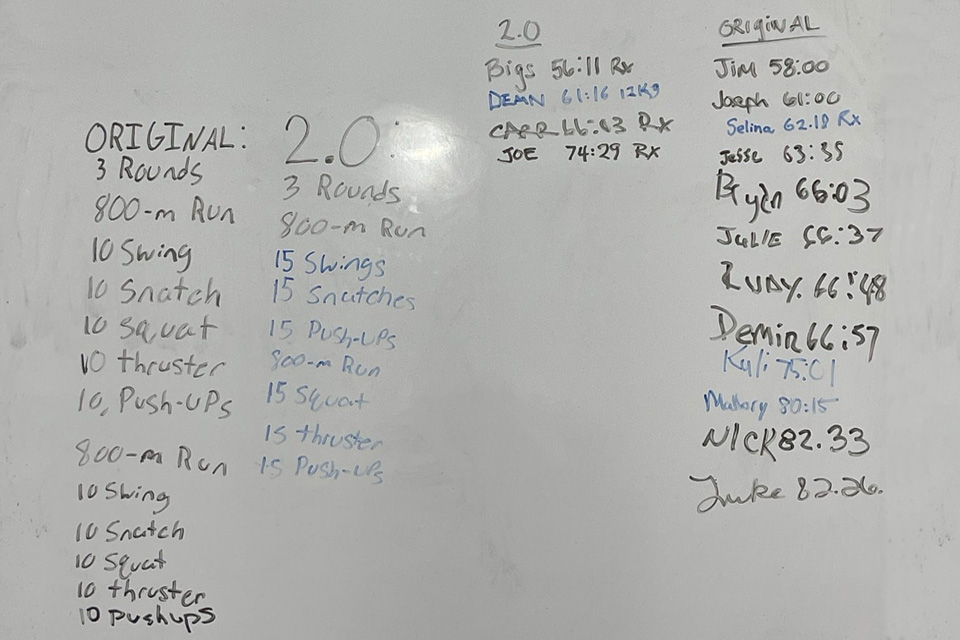 ORIGINAL:
3 Rounds
800-m Run
10 Swing
10 Snatch
10 Squat
10 thruster
10, Push-UPs
800-m Run
10 Swing
10 Snatch
10 Squat
10 thruster
10 pushups
2.0:
3 Rounds
800-m Run
15 Swings
15 Snatches
15 Push-UPs
800-m Run
15 Squat
15 thruster
15 Push-UPs
2.0
Bigs 56:11 Rx
DEMN 61:16 12Kg
CARR 66:03 RX
JOE 74:29 RX
ORIGINAL
Jim 58:00
Joseph 61:00
Selina 62.18 Rx
Jesse 63:35
Bryan 66:03
JULIE 66:37
66:48
Demin 66:57
Kyli 75:01
Mallory 80:15
NICK 82.33
Luke 82.26.